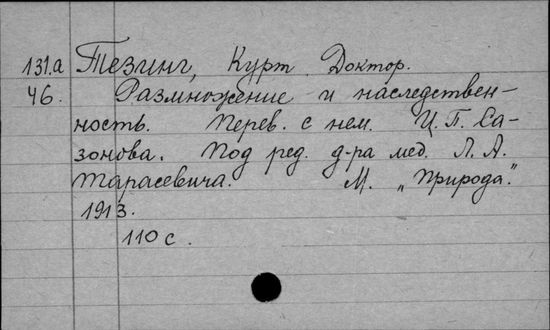 131.а Тезинг, Курт Доктор.
46. Размножение и наследствен-
ность. Перев. с нем. Ц. П. Са-
зонова. Под ред. д-ра мед. Л. А.
Тарасевича. М. „Природа".
1913.
110 с.